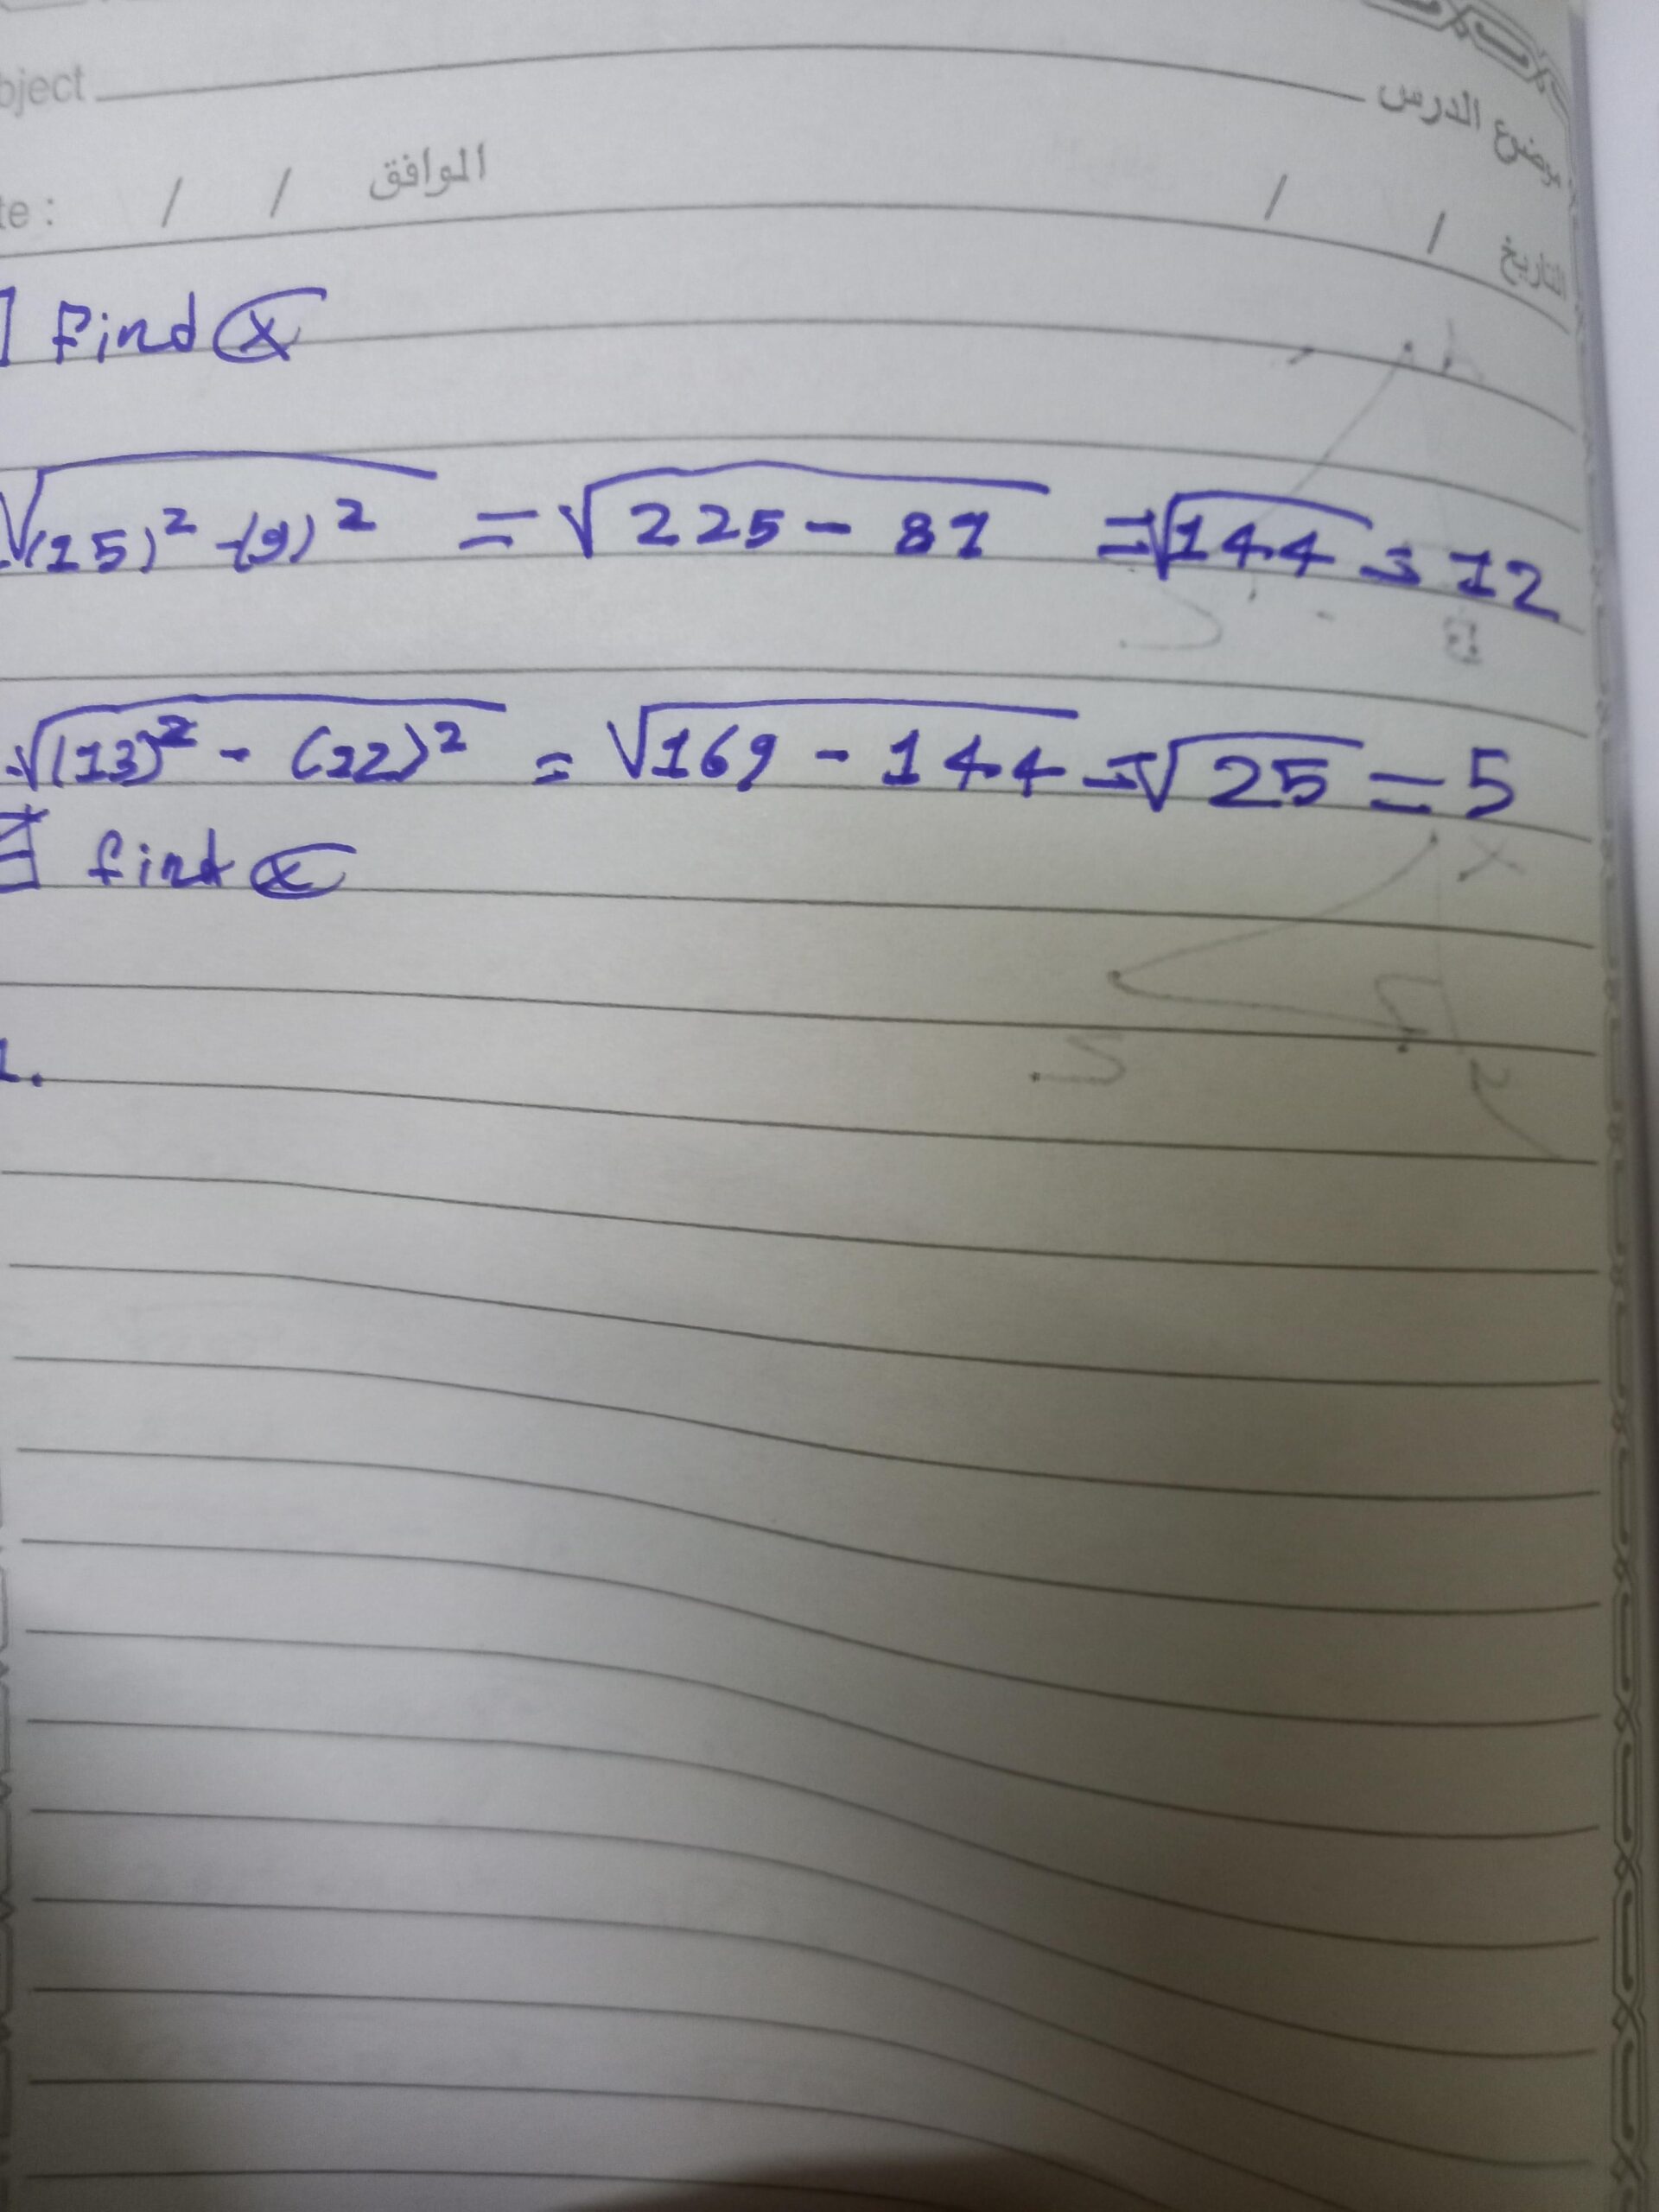 bject موضوع الدرس
te : / / الموافق / / التاريخ
Find x
√(15)² -(9)² = √225 - 81 = √144 = 12
√(13)² - (12)² = √169 - 144 = √25 = 5
find x
1.